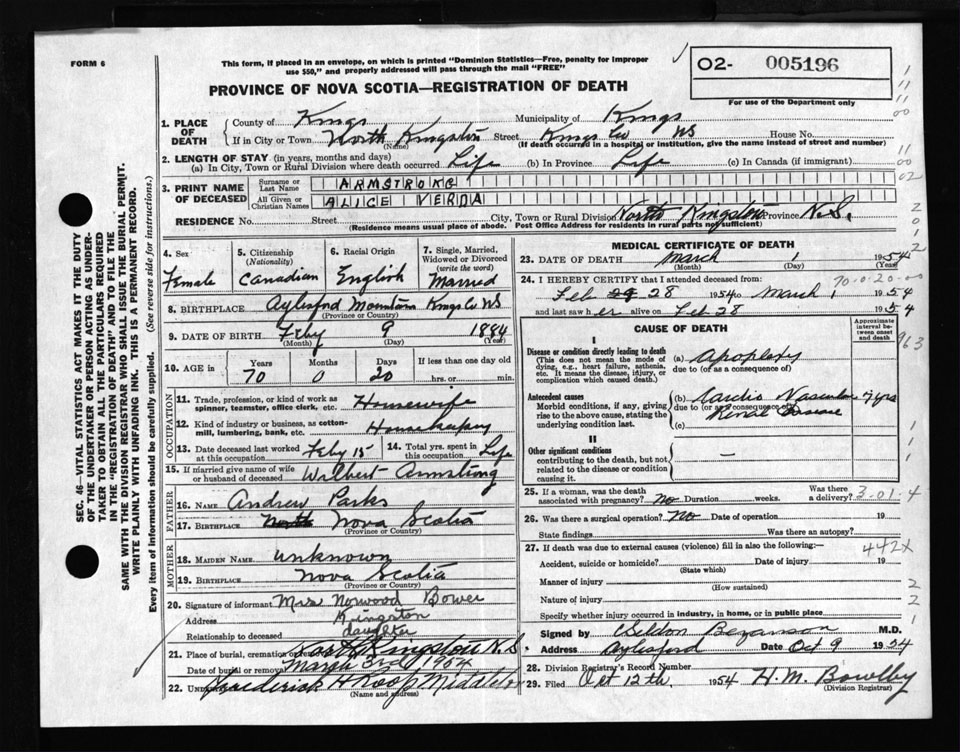 FORM 6
This form, if placed in an envelope, on which is printed "Dominion Statistics—Free, penalty for improper
use $50," and properly addressed will pass through the mail "FREE"
O2- 005196
For use of the Department only
PROVINCE OF NOVA SCOTIA—REGISTRATION OF DEATH
1. PLACE OF DEATH
County of Kings Municipality of Kings
If in City or Town North Kingston Street Kings Co NS House No.
(Name) (If death occurred in a hospital or institution, give the name instead of street and number)
2. LENGTH OF STAY (in years, months and days)
(a) In City, Town or Rural Division where death occurred Life (b) In Province Life (c) In Canada (if immigrant)
3. PRINT NAME OF DECEASED
Surname or Last Name ARMSTRONG
All Given or Christian Names ALICE VERDA
RESIDENCE No. Street City, Town or Rural Division North Kingston Province N.S.
(Residence means usual place of abode. Post Office Address for residents in rural parts not sufficient)
4. Sex Female
5. Citizenship (Nationality) Canadian
6. Racial Origin English
7. Single, Married, Widowed or Divorced (write the word) Married
8. BIRTHPLACE Aylesford Mountain Kings Co NS
(Province or Country)
9. DATE OF BIRTH Feby 9 1884
(Month) (Day) (Year)
10. AGE in Years 70 Months 0 Days 20 If less than one day hrs. or min.
OCCUPATION
11. Trade, profession, or kind of work as spinner, teamster, office clerk, etc. Housewife
12. Kind of industry or business, as cotton-mill, lumbering, bank, etc. Housekeeping
13. Date deceased last worked at this occupation Feby 15
14. Total yrs. spent in this occupation Life
15. If married give name of wife or husband of deceased Wilbert Armstrong
FATHER
16. NAME Andrew Parks
17. BIRTHPLACE North Nova Scotia
(Province or Country)
MOTHER
18. MAIDEN NAME unknown
19. BIRTHPLACE Nova Scotia
(Province or Country)
20. Signature of informant Mrs Norwood Bower
Address Kingston
Relationship to deceased daughter
21. Place of burial, cremation or removal North Kingston N.S
Date of burial or removal March 3rd 1954
22. Frederick H Roop Middleton
(Name and address)
MEDICAL CERTIFICATE OF DEATH
23. DATE OF DEATH March 1 1954
(Month) (Day) (Year)
24. I HEREBY CERTIFY that I attended deceased from:
70-0-20-00
Feb 28 1954 to March 1 1954
and last saw her alive on Feb 28 1954
CAUSE OF DEATH
Approximate interval between onset and death
I
Disease or condition directly leading to death
(This does not mean the mode of dying, e.g., heart failure, asthenia, etc. It means the disease, injury, or complication which caused death.)
(a) Apoplexy
due to (or as a consequence of)
963
Antecedent causes
Morbid conditions, if any, giving rise to the above cause, stating the underlying condition last.
(b) Cardio Vascular 7 yrs
due to (or as a consequence of) Renal Disease
(c)
II
Other significant conditions
contributing to the death, but not related to the disease or condition causing it.
—
25. If a woman, was the death associated with pregnancy? No Duration weeks. Was there a delivery? 3-01-4
26. Was there a surgical operation? No Date of operation 19
State findings Was there an autopsy?
27. If death was due to external causes (violence) fill in also the following:—
442X
Accident, suicide or homicide? Date of injury 19
(State which)
Manner of injury
(How sustained)
Nature of injury
Specify whether injury occurred in industry, in home, or in public place
Signed by Sheldon Bezanson M.D.
Address Aylesford Date Oct 9 1954
28. Division Registrar's Record Number
29. Filed Oct 12th 1954 H. M. Bowlby
(Division Registrar)
SEC. 46—VITAL STATISTICS ACT MAKES IT THE DUTY
OF THE UNDERTAKER OR PERSON ACTING AS UNDER-
TAKER TO OBTAIN ALL THE PARTICULARS REQUIRED
IN THE "REGISTRATION OF DEATH" AND TO FILE THE
SAME WITH THE DIVISION REGISTRAR WHO SHALL ISSUE THE BURIAL PERMIT.
WRITE PLAINLY WITH UNFADING INK. THIS IS A PERMANENT RECORD.
Every item of information should be carefully supplied. (See reverse side for instructions.)